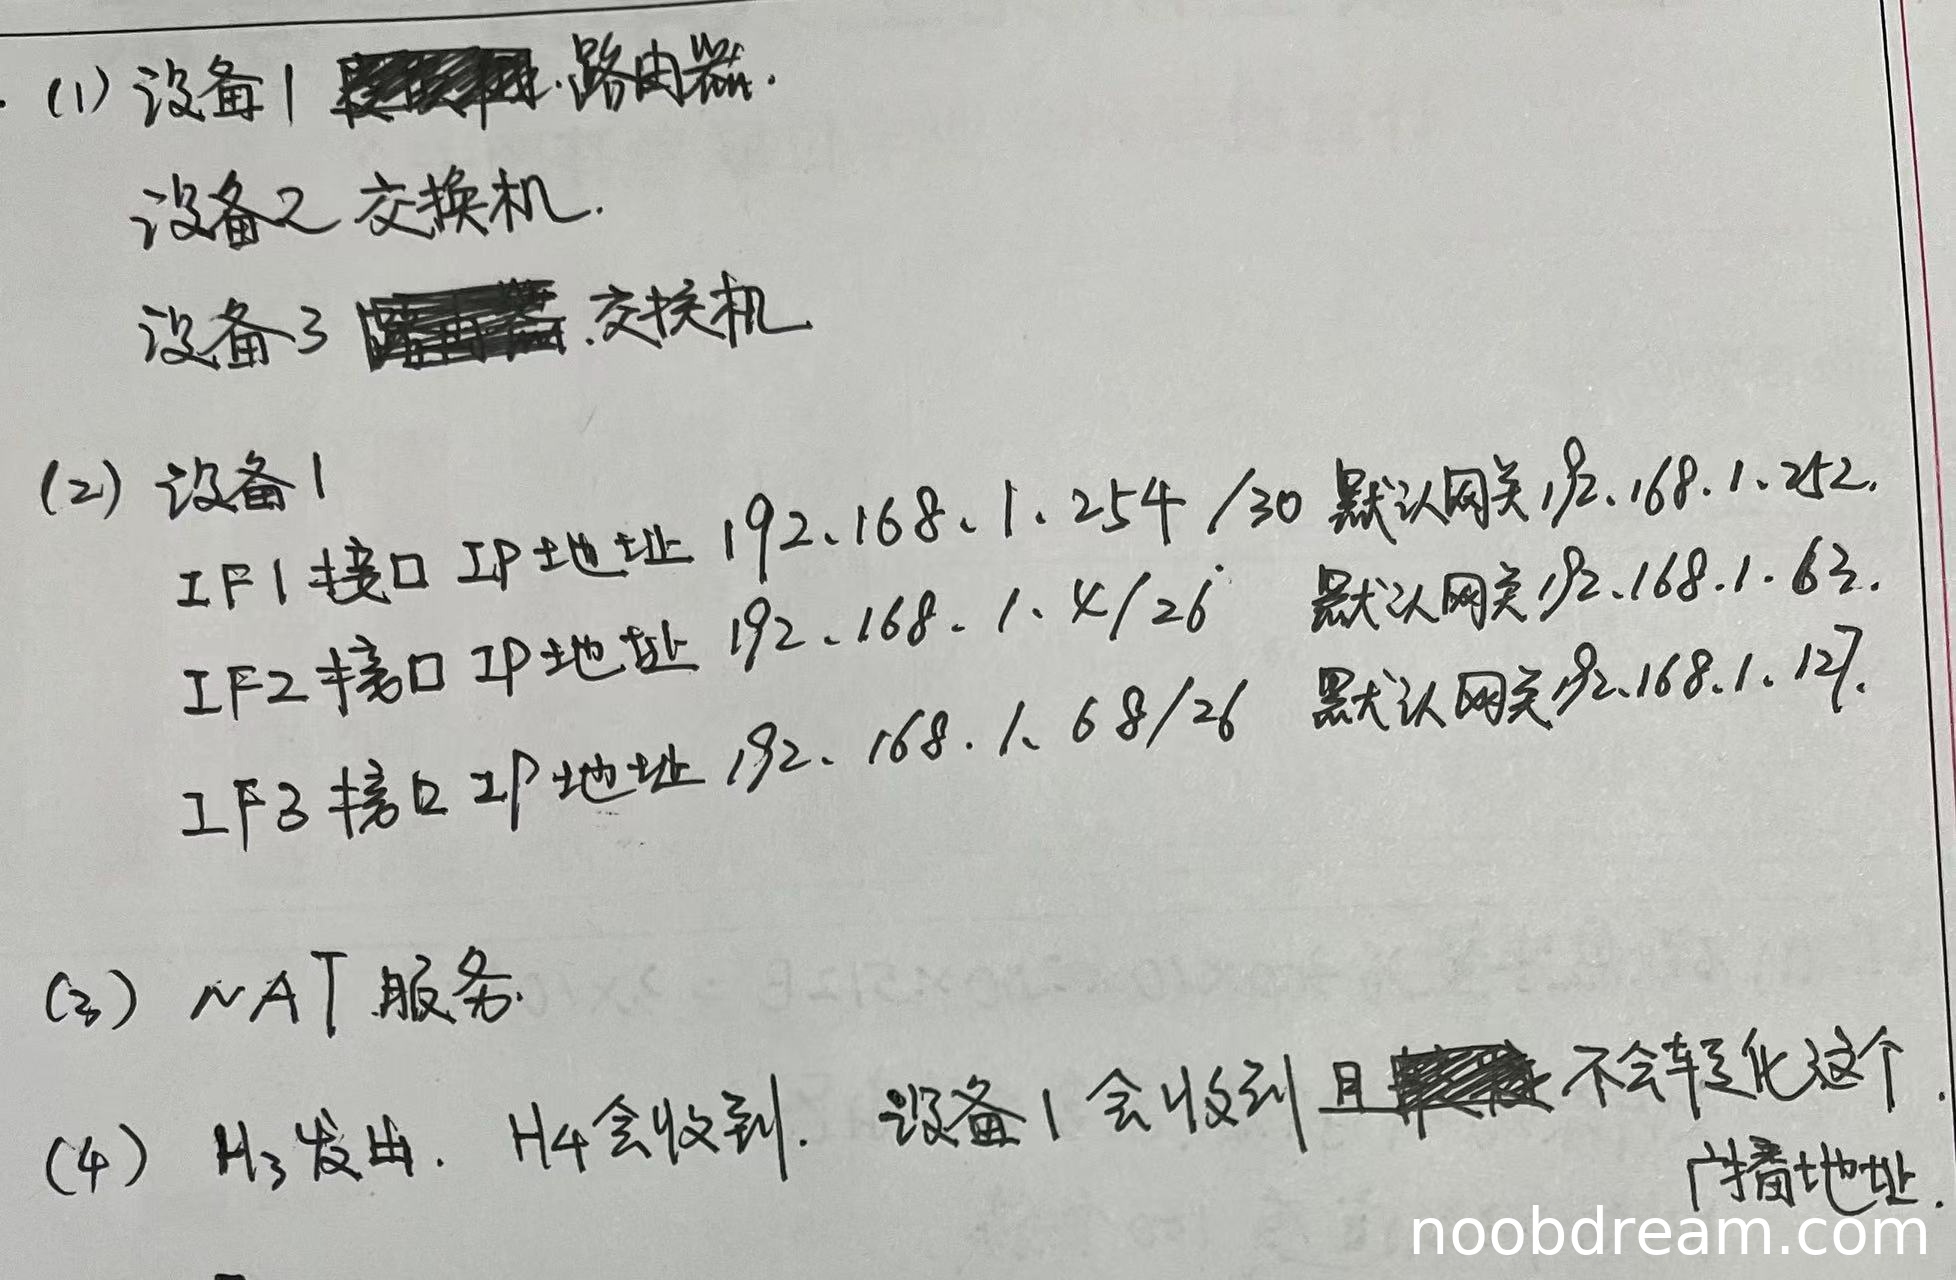 (1) 设备1 路由器.
设备2 交换机.
设备3 .交换机
(2) 设备1
IF1接口 IP地址 192.168.1.254 /30 默认网关192.168.1.252.
IF2接口 IP地址 192.168.1.4/26 默认网关192.168.1.63.
IF3接口 IP地址 192.168.1.68/26 默认网关192.168.1.127.
(3) NAT服务.
(4) H3发出. H4会收到. 设备1会收到且 不会转化这个
广播地址.
noobdream.com